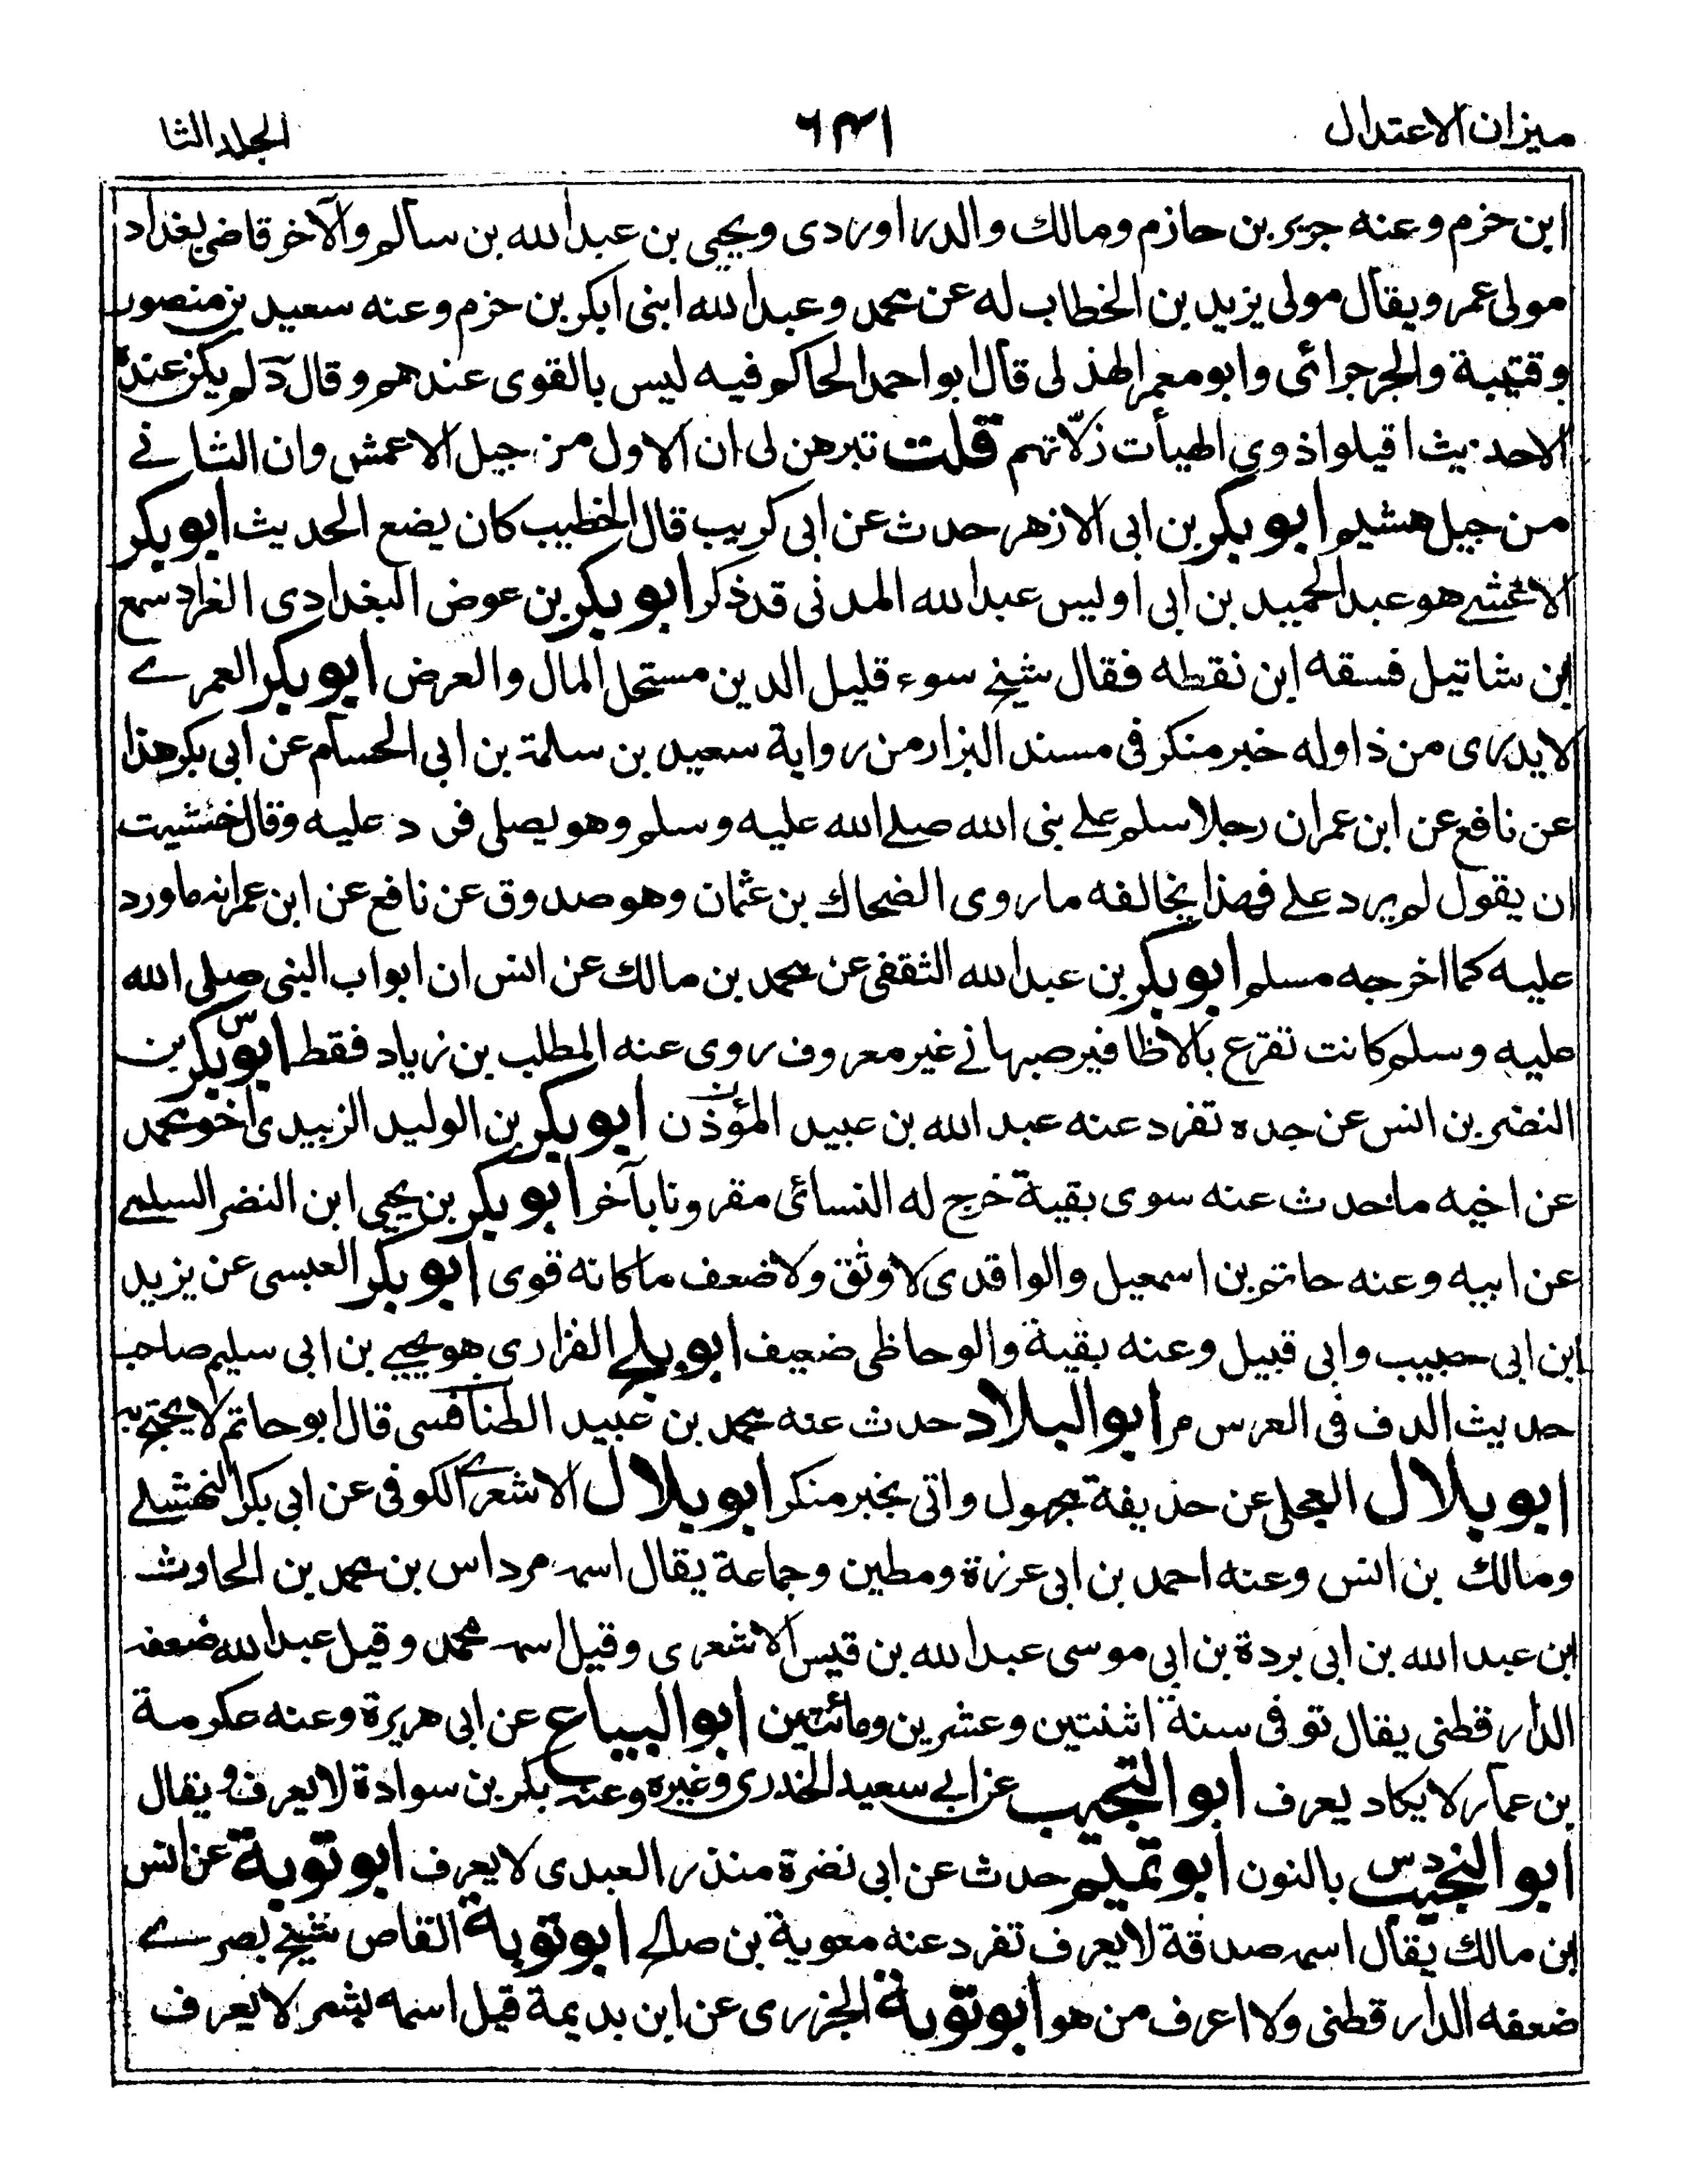 ميزان الاعتدال
٦٣١
الجلد الثا
ابن حزم وعنه جرير بن حازم ومالك والدراوردى ويحيى بن عبد الله بن سالم والآخر قاضى بغداد
مولى عمر ويقال مولى يزيد بن الخطاب له عن محمد وعبد الله ابنى ابكر بن حزم وعنه سعيد بن منصور
وقتيبة والجرجرائى وابو معمر الهذلى قال ابو احمد الحاكم فيه ليس بالقوى عندهم وقال د لم يكن عنده
الاحديث اقيلوا ذوى الهيأت زلاتهم قلت تبرهن لى ان الاول من جيل الاعمش وان الثانے
من جيل هشيم ابو بكر بن ابى الازهر حدث عن ابى كريب قال الخطيب كان يضع الحديث ابو بكر
الاعشے هو عبد الحميد بن ابى اويس عبد الله المدنى قد ذكر ابو بكر بن عوض البغدادى الغراد سمع
ابن شاتيل فسقه ابن نقطه فقال شيخ سوء قليل الدين مستحل المال والعرض ابو بكر العمرے
لا يدرى من ذا وله خبر منكر فى مسند البزار من رواية سعيد بن سلمة بن ابى الحسام عن ابى بكر هذا
عن نافع عن ابن عمر ان رجلا سلم علے نبى الله صلے الله عليه وسلم وهو يصلى فرد عليه وقال خشيت
ان يقول لم يرد علے فهذا يخالفه ما روى الضحاك بن عثمان وهو صدوق عن نافع عن ابن عمر انه ما ورد
عليه كما اخرجه مسلم ابو بكر بن عبد الله الثقفى عن محمد بن مالك عن انس ان ابواب النبى صلى الله
عليه وسلم كانت تقرع بالاظافير صبهانے غير معروف روى عنه المطلب بن زياد فقط ابو بكر بن
النضر بن انس عن جده تفرد عنه عبد الله بن عبيد المؤذن ابو بكر بن الوليد الزبيدى اخو محمد
عن اخيه ما حدث عنه سوى بقية خرج له النسائى مقرونا بآخر ابو بكر بن يحيى ابن النضر السليمے
عن ابيه وعنه حاتم بن اسمعيل والواقدى لا وثق ولا ضعف ما كانه قوى ابو بكر العبسى عن يزيد
ابن ابى حبيب وابى قبيل وعنه بقية والوحاظى ضعيف ابو بلے الفزارى هو يحيے بن ابى سليم صاحب
حديث الدف فى العرس مر ابو البلاد حدث عنه محمد بن عبيد الطنافسى قال ابو حاتم لا يحتج به
ابو بلال العجلى عن حذيفة مجهول واتى بخبر منكر ابو بلال الاشعرے الكوفى عن ابى بكر النهشلے
ومالك بن انس وعنه احمد بن ابى عرزة ومطين وجماعة يقال اسمه مرداس بن محمد بن الحارث
ابن عبد الله بن ابى بردة بن ابى موسى عبد الله بن قيس الاشعرى وقيل اسمه محمد وقيل عبد الله ضعفه
الدارقطنى يقال توفى سنة اثنتين وعشرين ومائتين ابو البياع عن ابى هريرة وعنه عكرمة
بن عمار لا يكاد يعرف ابو التجيب عن ابى سعيد الخدرى وغيره وعنه بكر بن سوادة لا يعرف ويقال
ابو النجيب د س بالنون ابو تميم حدث عن ابى نضرة منذر العبدى لا يعرف ابو توبة عن انس
ابن مالك يقال اسمه صدقة لا يعرف تفرد عنه معوية بن صالح ابو توبة القاص شيخ بصرے
ضعفه الدارقطنى ولا اعرف من هو ابو توبة الجزرى عن ابن بديمة قيل اسمه بشر لا يعرف